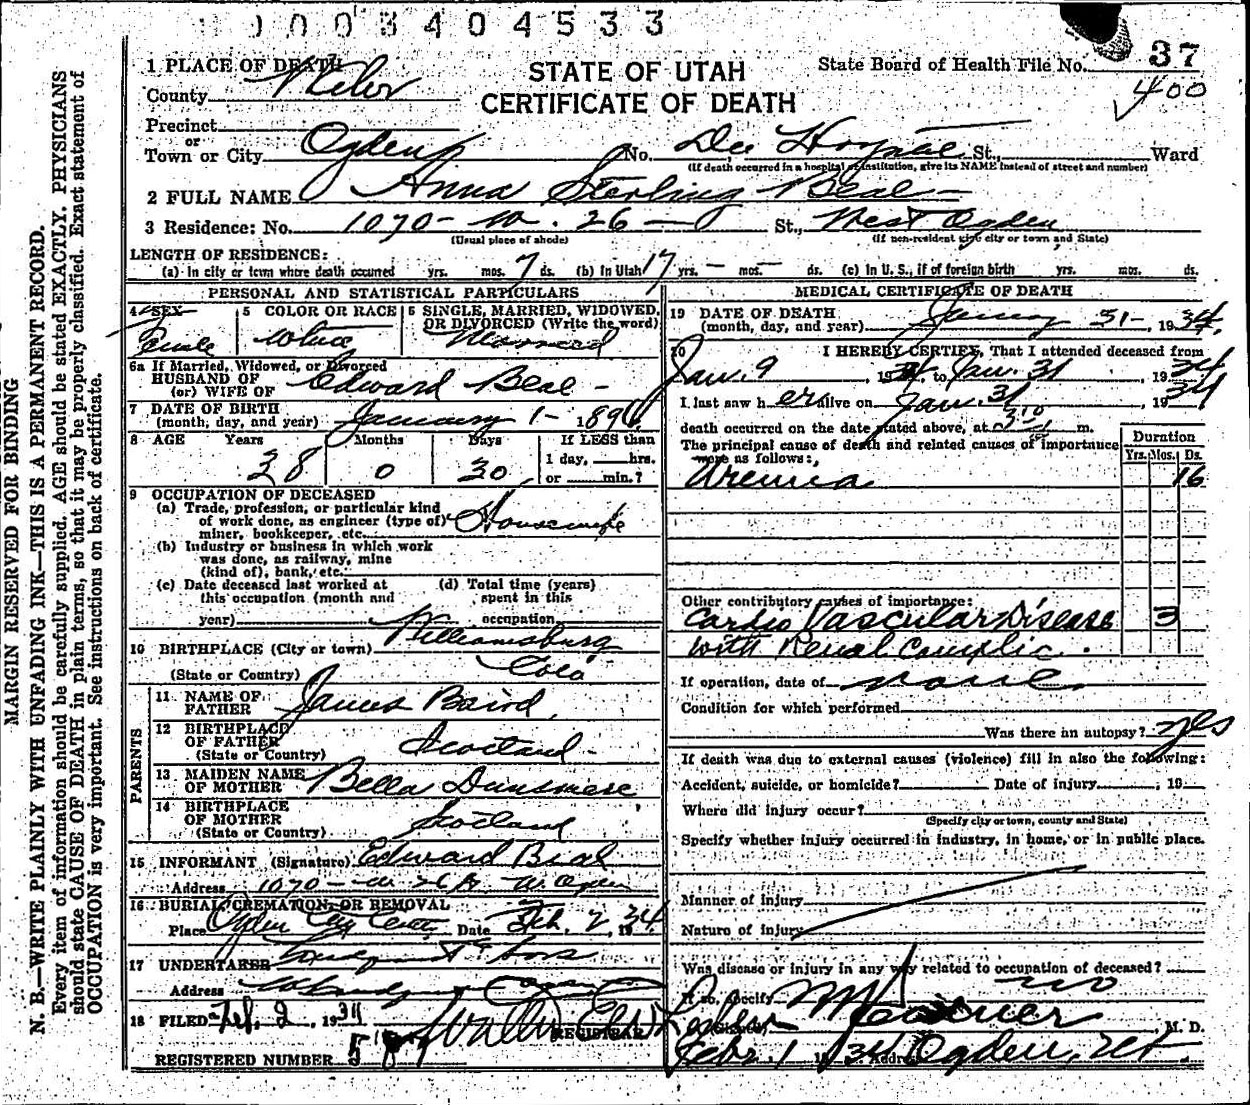 0 0 3 4 0 4 5 3 3
MARGIN RESERVED FOR BINDING
N. B.—WRITE PLAINLY WITH UNFADING INK—THIS IS A PERMANENT RECORD.
Every item of information should be carefully supplied. AGE should be stated EXACTLY. PHYSICIANS
should state CAUSE OF DEATH in plain terms, so that it may be properly classified. Exact statement of
OCCUPATION is very important. See instructions on back of certificate.
STATE OF UTAH
CERTIFICATE OF DEATH
State Board of Health File No. 37
400
1 PLACE OF DEATH
County Weber
Precinct
or
Town or City Ogden No. Dee Hospital St., Ward
(If death occurred in a hospital or institution, give its NAME instead of street and number)
2 FULL NAME Anna Sterling Beal
3 Residence: No. 1070 - W. 26 St., West Ogden
(Usual place of abode) (If non-resident give city or town and State)
LENGTH OF RESIDENCE:
(a) In city or town where death occurred yrs. mos. 7 ds. (b) In Utah 17 yrs. — mos. — ds. (c) In U. S., if of foreign birth yrs. mos. ds.
PERSONAL AND STATISTICAL PARTICULARS
4 SEX 5 COLOR OR RACE 6 SINGLE, MARRIED, WIDOWED, OR DIVORCED (Write the word)
Female White Married
6a If Married, Widowed, or Divorced
HUSBAND OF
(or) WIFE OF Edward Beal -
7 DATE OF BIRTH
(month, day, and year) January 1 - 1896
8 AGE Years Months Days If LESS than
1 day, hrs.
38 0 30 or min.?
9 OCCUPATION OF DECEASED
(a) Trade, profession, or particular kind
of work done, as engineer (type of) Housewife
miner, bookkeeper, etc.
(b) Industry or business in which work
was done, as railway, mine
(kind of), bank, etc.
(c) Date deceased last worked at (d) Total time (years)
this occupation (month and spent in this
year) occupation
10 BIRTHPLACE (City or town) Williamsburg
(State or Country) Colo
PARENTS
11 NAME OF
FATHER James Baird
12 BIRTHPLACE
OF FATHER Scotland -
(State or Country)
13 MAIDEN NAME
OF MOTHER Bella Dunsmere
14 BIRTHPLACE
OF MOTHER Scotland
(State or Country)
15 INFORMANT (Signature) Edward Beal
Address 1070 - W. 26 St. W. Ogden
16 BURIAL, CREMATION, OR REMOVAL
Place Ogden City Date Feb. 2, 1934
17 UNDERTAKER
Address
18 FILED Feb. 2, 1934
REGISTRAR
REGISTERED NUMBER 58
MEDICAL CERTIFICATE OF DEATH
19 DATE OF DEATH
(month, day, and year) January 31 - 1934.
20 I HEREBY CERTIFY, That I attended deceased from
Jan. 9, 1934 to Jan. 31, 1934
I last saw her alive on Jan. 31, 1934
death occurred on the date stated above, at m.
The principal cause of death and related causes of importance
were as follows:
Duration
Yrs. Mos. Ds.
Uremia 16
Other contributory causes of importance:
Cardio Vascular Disease 3
with Renal Complic.
If operation, date of none
Condition for which performed
Was there an autopsy? yes
If death was due to external causes (violence) fill in also the following:
Accident, suicide, or homicide? Date of injury , 19
Where did injury occur?
(Specify city or town, county and State)
Specify whether injury occurred in industry, in home, or in public place.
Manner of injury
Nature of injury
Was disease or injury in any way related to occupation of deceased?
If so, specify no
(Signed) , M. D.
Feb. 1 1934 Address Ogden, Ut.